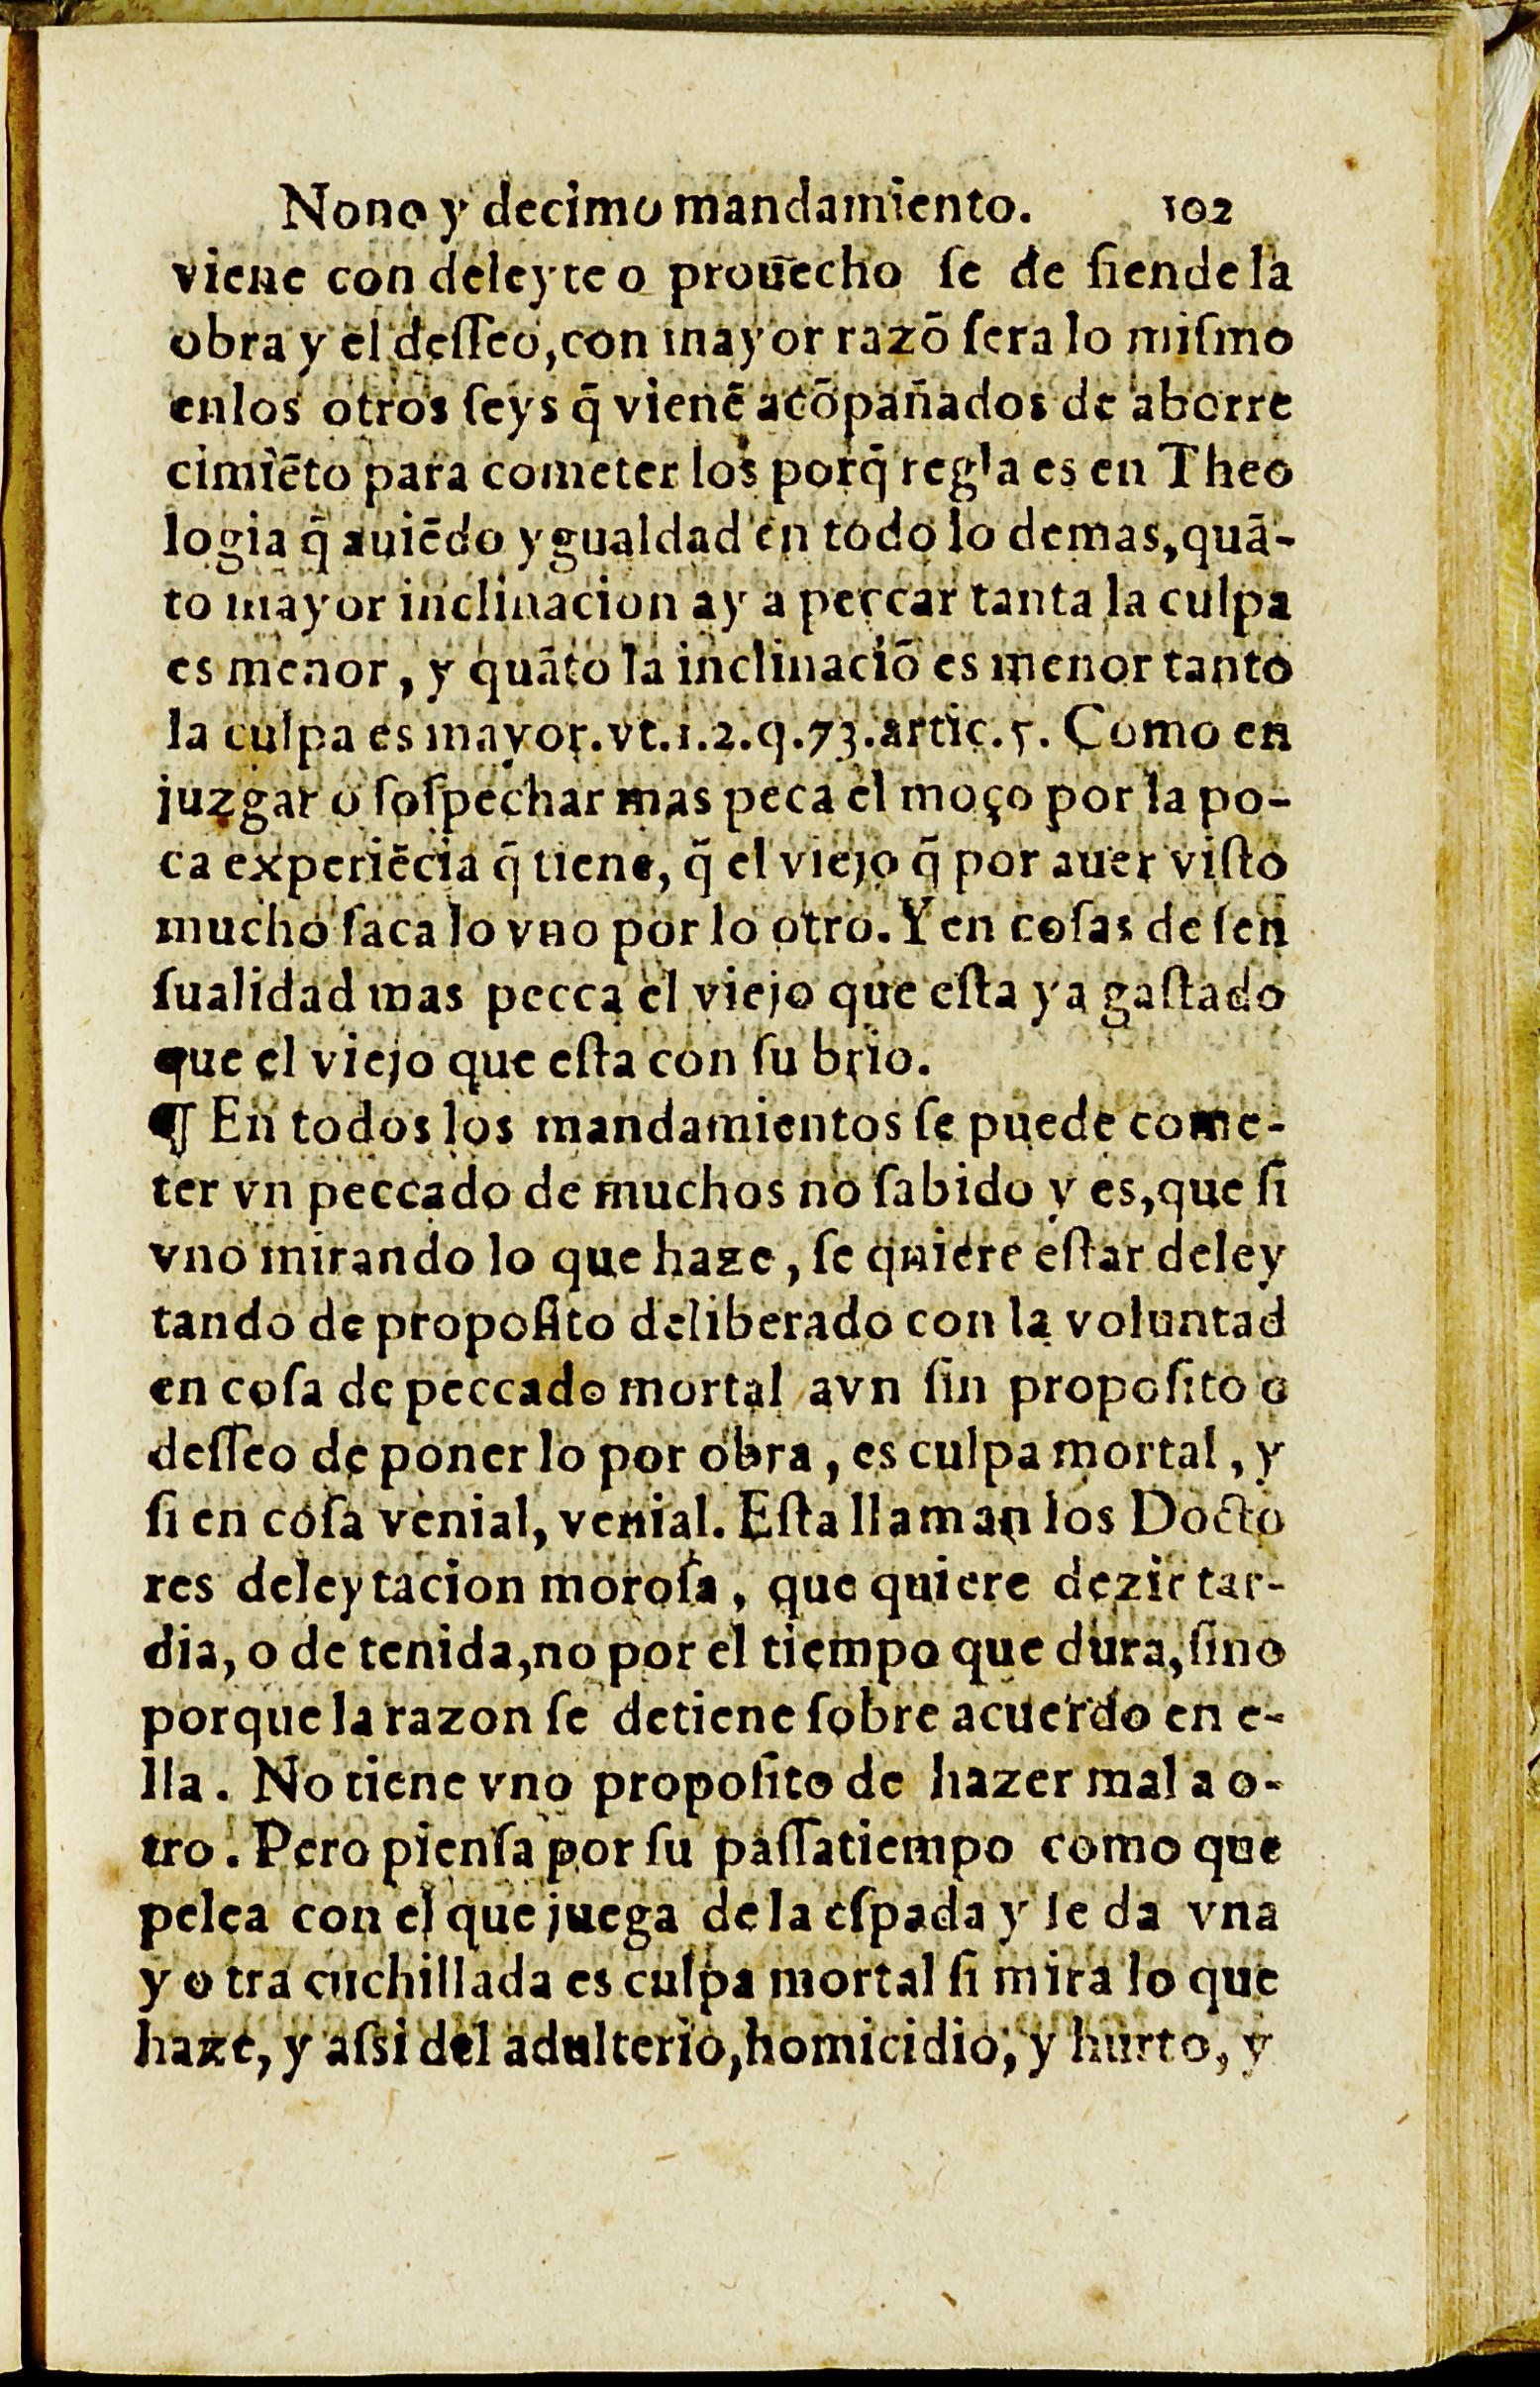 Nono y decimo mandamiento. 102
viene con deleyte o prouecho ſe de fiende la
obra y el deſſeo, con mayor razõ ſera lo miſmo
enlos otros ſeys q̃ vienẽ acõpañados de aborre
cimiẽto para cometer los porq̃ regla es en Theo
logia q̃ auiẽdo ygualdad en todo lo demas, quã-
to mayor inclinacion ay a peccar tanta la culpa
es menor, y quãto la inclinaciõ es menor tanto
la culpa es mayor. vt. 1. 2. q. 73. artic. 5. Como en
juzgar o ſoſpechar mas peca el moço por la po-
ca experiẽcia q̃ tiene, q̃ el viejo q̃ por auer viſto
mucho ſaca lo vno por lo otro. Y en coſas de ſen
ſualidad mas pecca el viejo que eſta ya gaſtado
que el viejo que eſta con ſu brio.
¶ En todos los mandamientos ſe puede come-
ter vn peccado de muchos no ſabido y es, que ſi
vno mirando lo que haze, ſe qniere eſtar deley
tando de propoſito deliberado con la voluntad
en coſa de peccado mortal avn ſin propoſito o
deſſeo de poner lo por obra, es culpa mortal, y
ſi en coſa venial, venial. Eſta llaman los Docto
res deleytacion moroſa, que quiere dezir tar-
dia, o de tenida, no por el tiempo que dura, ſino
porque la razon ſe detiene ſobre acuerdo en e-
lla. No tiene vno propoſito de hazer mal a o-
tro. Pero pienſa por ſu paſſatiempo como que
pelea con el que juega de la eſpada y le da vna
y o tra cuchillada es culpa mortal ſi mira lo que
haze, y aſsi del adulterio, homicidio, y hurto, y